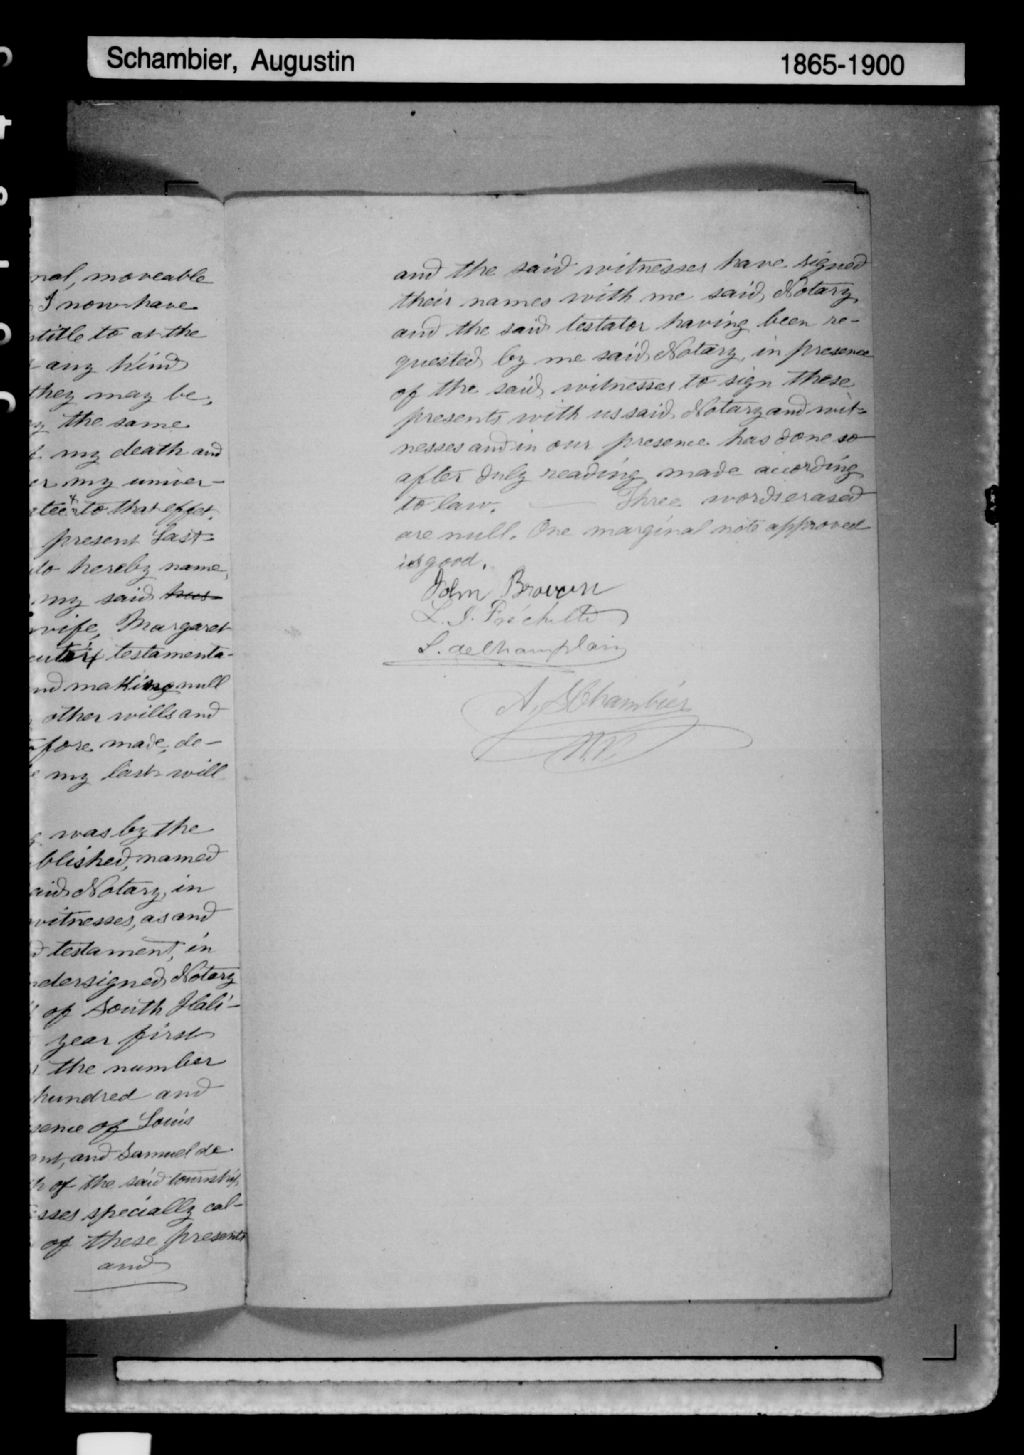 Schambier, Augustin 1865-1900
moveable
I now have
title to at the
any kind
they may be,
the same
my death and
my univer-
to that effect,
present Last
do hereby name,
my said hus-
wife, Margaret
testamenta-
nd making null
other wills and
fore made, de-
my last will
was by the
blished, named
aid Notary, in
witnesses, as and
testament, in
ndersigned Notary
of South Hali-
year first
the number
hundred and
sence of Louis
and Samuel de
of the said township,
sses specially cal-
of these presents
and
and the said witnesses have signed
their names with me said, Notary,
and the said testator having been re-
quested by me said Notary, in presence
of the said, witnesses to sign these
presents with us said, Notary and wit-
nesses and in our presence has done so
after duly reading made according
to law. — Three words erased
are null. One marginal note approved
is good.
John Brown
L. J. Fréchette
S. de Champlain
A. SChambier
N.P.